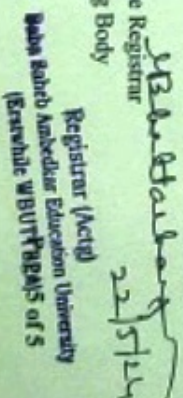 e Registrar
g Body
22/5/24
Registrar (Actg)
Baba Saheb Ambedkar Education University
(Erstwhile WBUTTEPA)
5 of 5